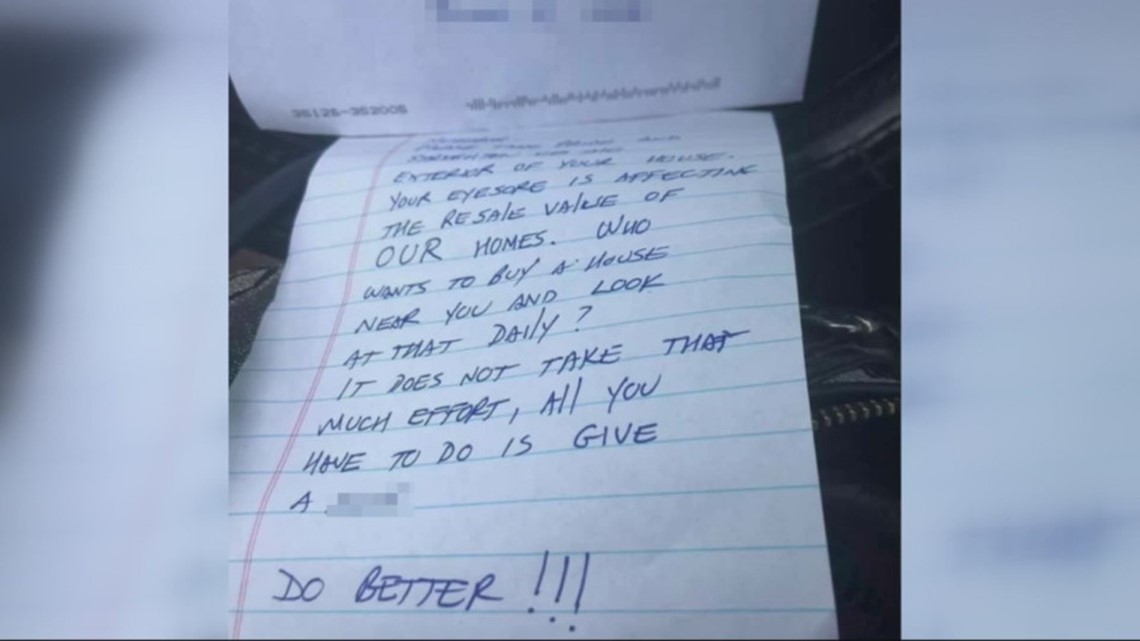 35126-352005
PLEASE TAKE PRIDE AND
EXTERIOR OF YOUR HOUSE.
YOUR EYESORE IS AFFECTING
THE RESALE VALUE OF
OUR HOMES. WHO
WANTS TO BUY A HOUSE
NEAR YOU AND LOOK
AT THAT DAILY?
IT DOES NOT TAKE THAT
MUCH EFFORT, All YOU
HAVE TO DO IS GIVE
A
DO BETTER !!!